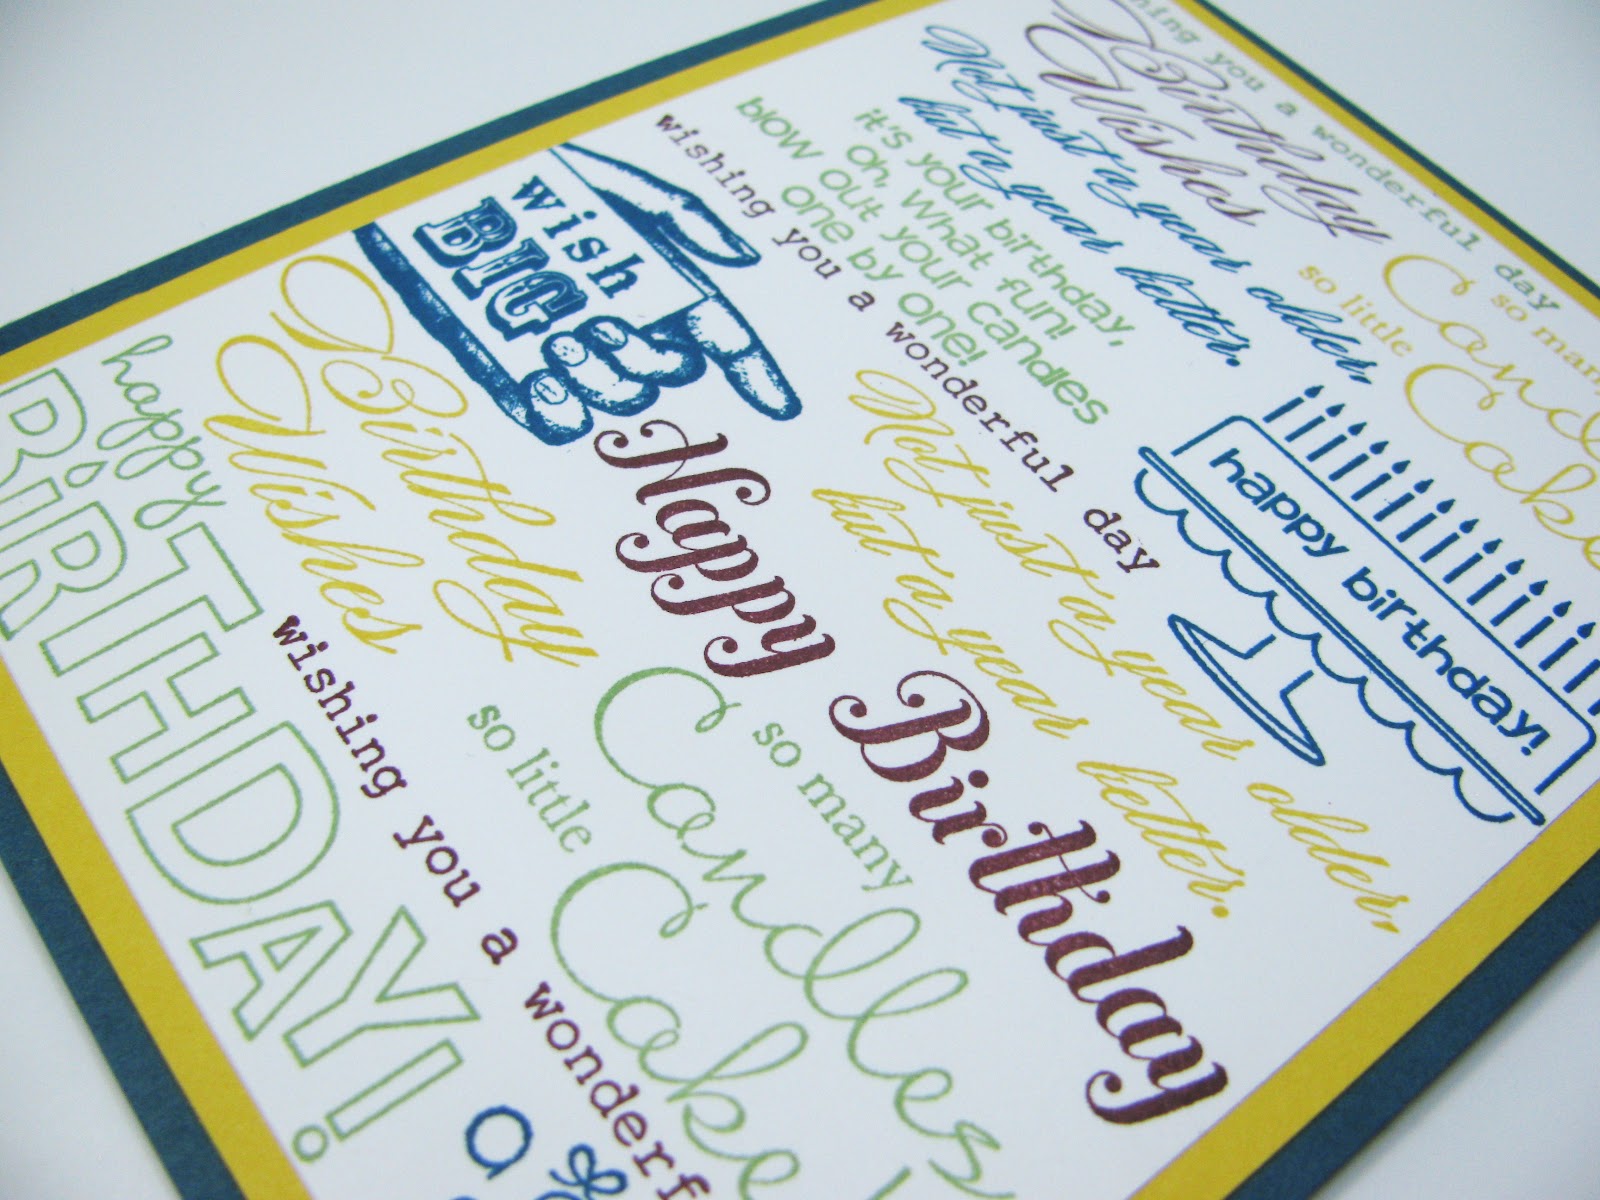 you a wonderful day
Birthday
Wishes
Not just a year older,
but a year better.
so many
so little
it's your birthday,
oh, what fun!
blow out your candles
one by one!
wishing you a wonderful day
happy birthday!
wish
BIG
Not just a year older,
but a year better.
Happy Birthday
Birthday
Wishes
so many
Candles
so little
Cake
happy
BIRTHDAY!
wishing you a